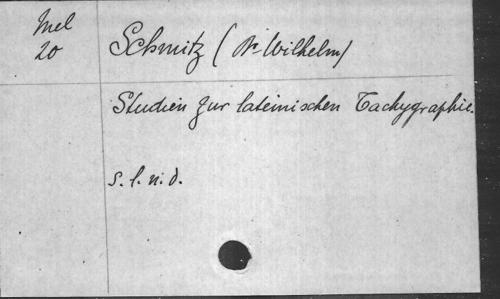 Mel
20
Schmitz (Dr Wilhelm)
Studien zur lateinischen Tachygraphie.
s. l. n. d.